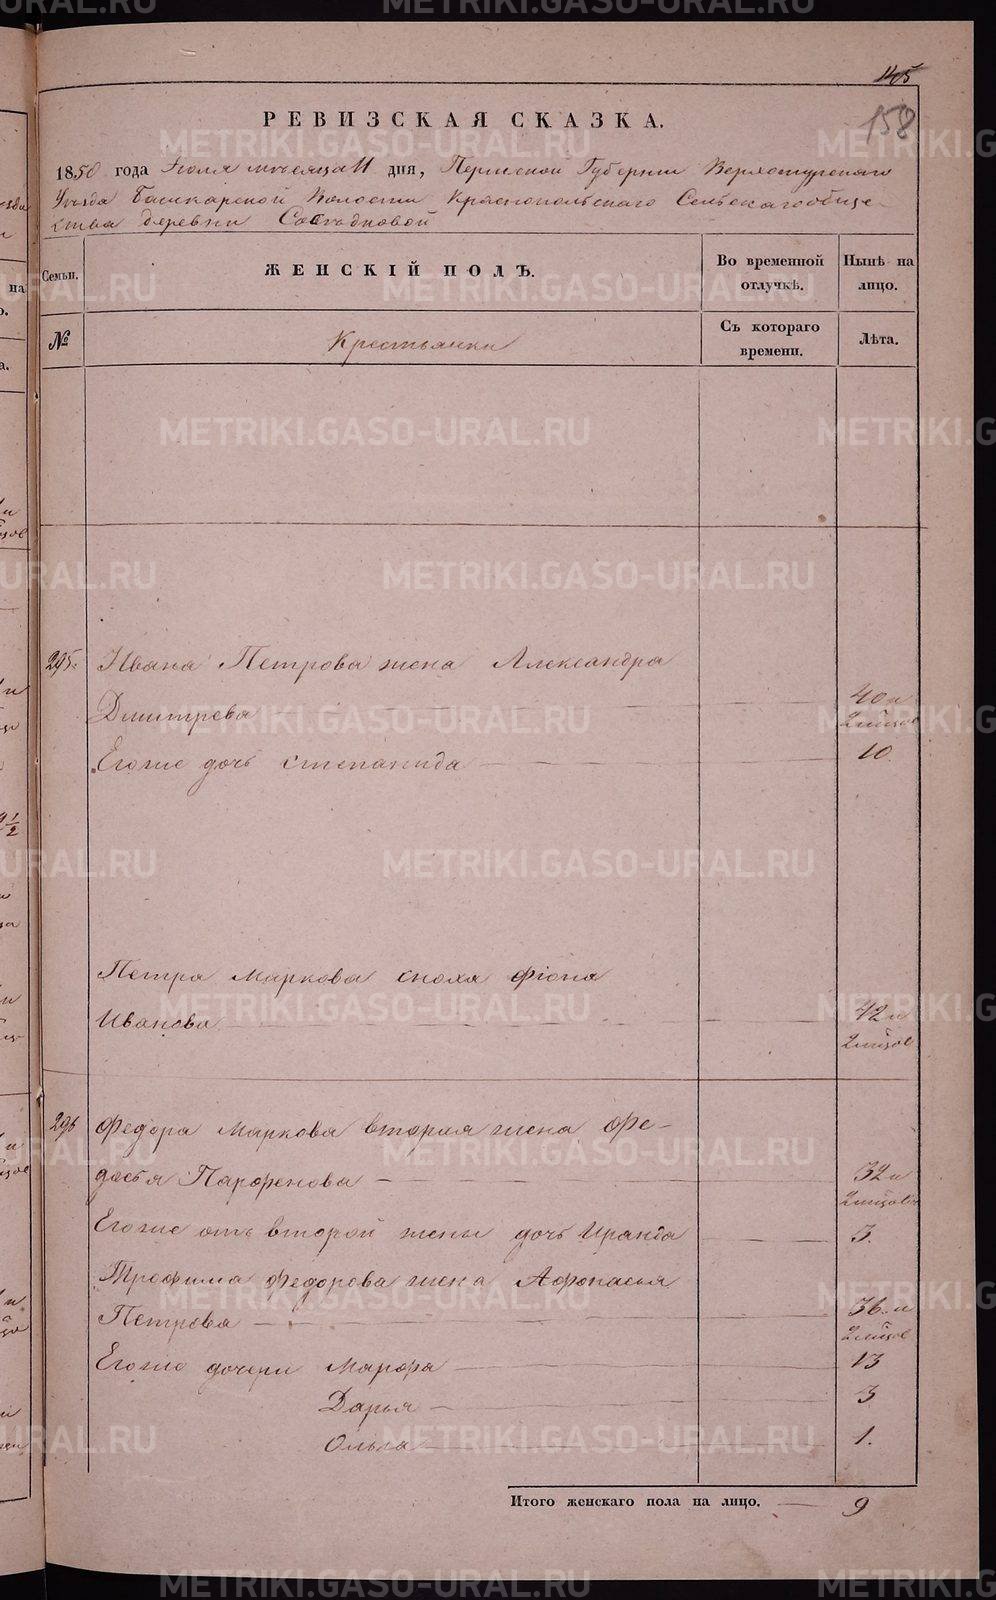 145
158
РЕВИЗСКАЯ СКАЗКА.
1850 года Июля месяца 11 дня, Пермской Губернии Верхотурскаго
Уезда Башкарской Волости Краснопольскаго Сельскагообще-
ства деревни
Семьи.
ЖЕНСКІЙ ПОЛЪ.
Во временной отлучкѣ.
Нынѣ на лицо.
№
Крестьянки
Съ котораго времени.
Лѣта.
295. Ивана Петрова жена Александра
Дмитрева — 40 и 2 мѣсяцов
Егоже дочь Степанида — 10
Петра Маркова сноха Фіона
Иванова — 42 и 2 мѣсяцов
296 Федора Маркова вторая жена Фе-
досья Парфенова — 32 и
Егоже отъ второй жены дочь Ираида — 3.
Трофима Федорова жена Афонасья
Петрова — 36 и
Егоже дочери Марфа — 13
Дарья — 3
Ольга — 1.
Итого женскаго пола на лицо. — 9
METRIKI.GASO-URAL.RU